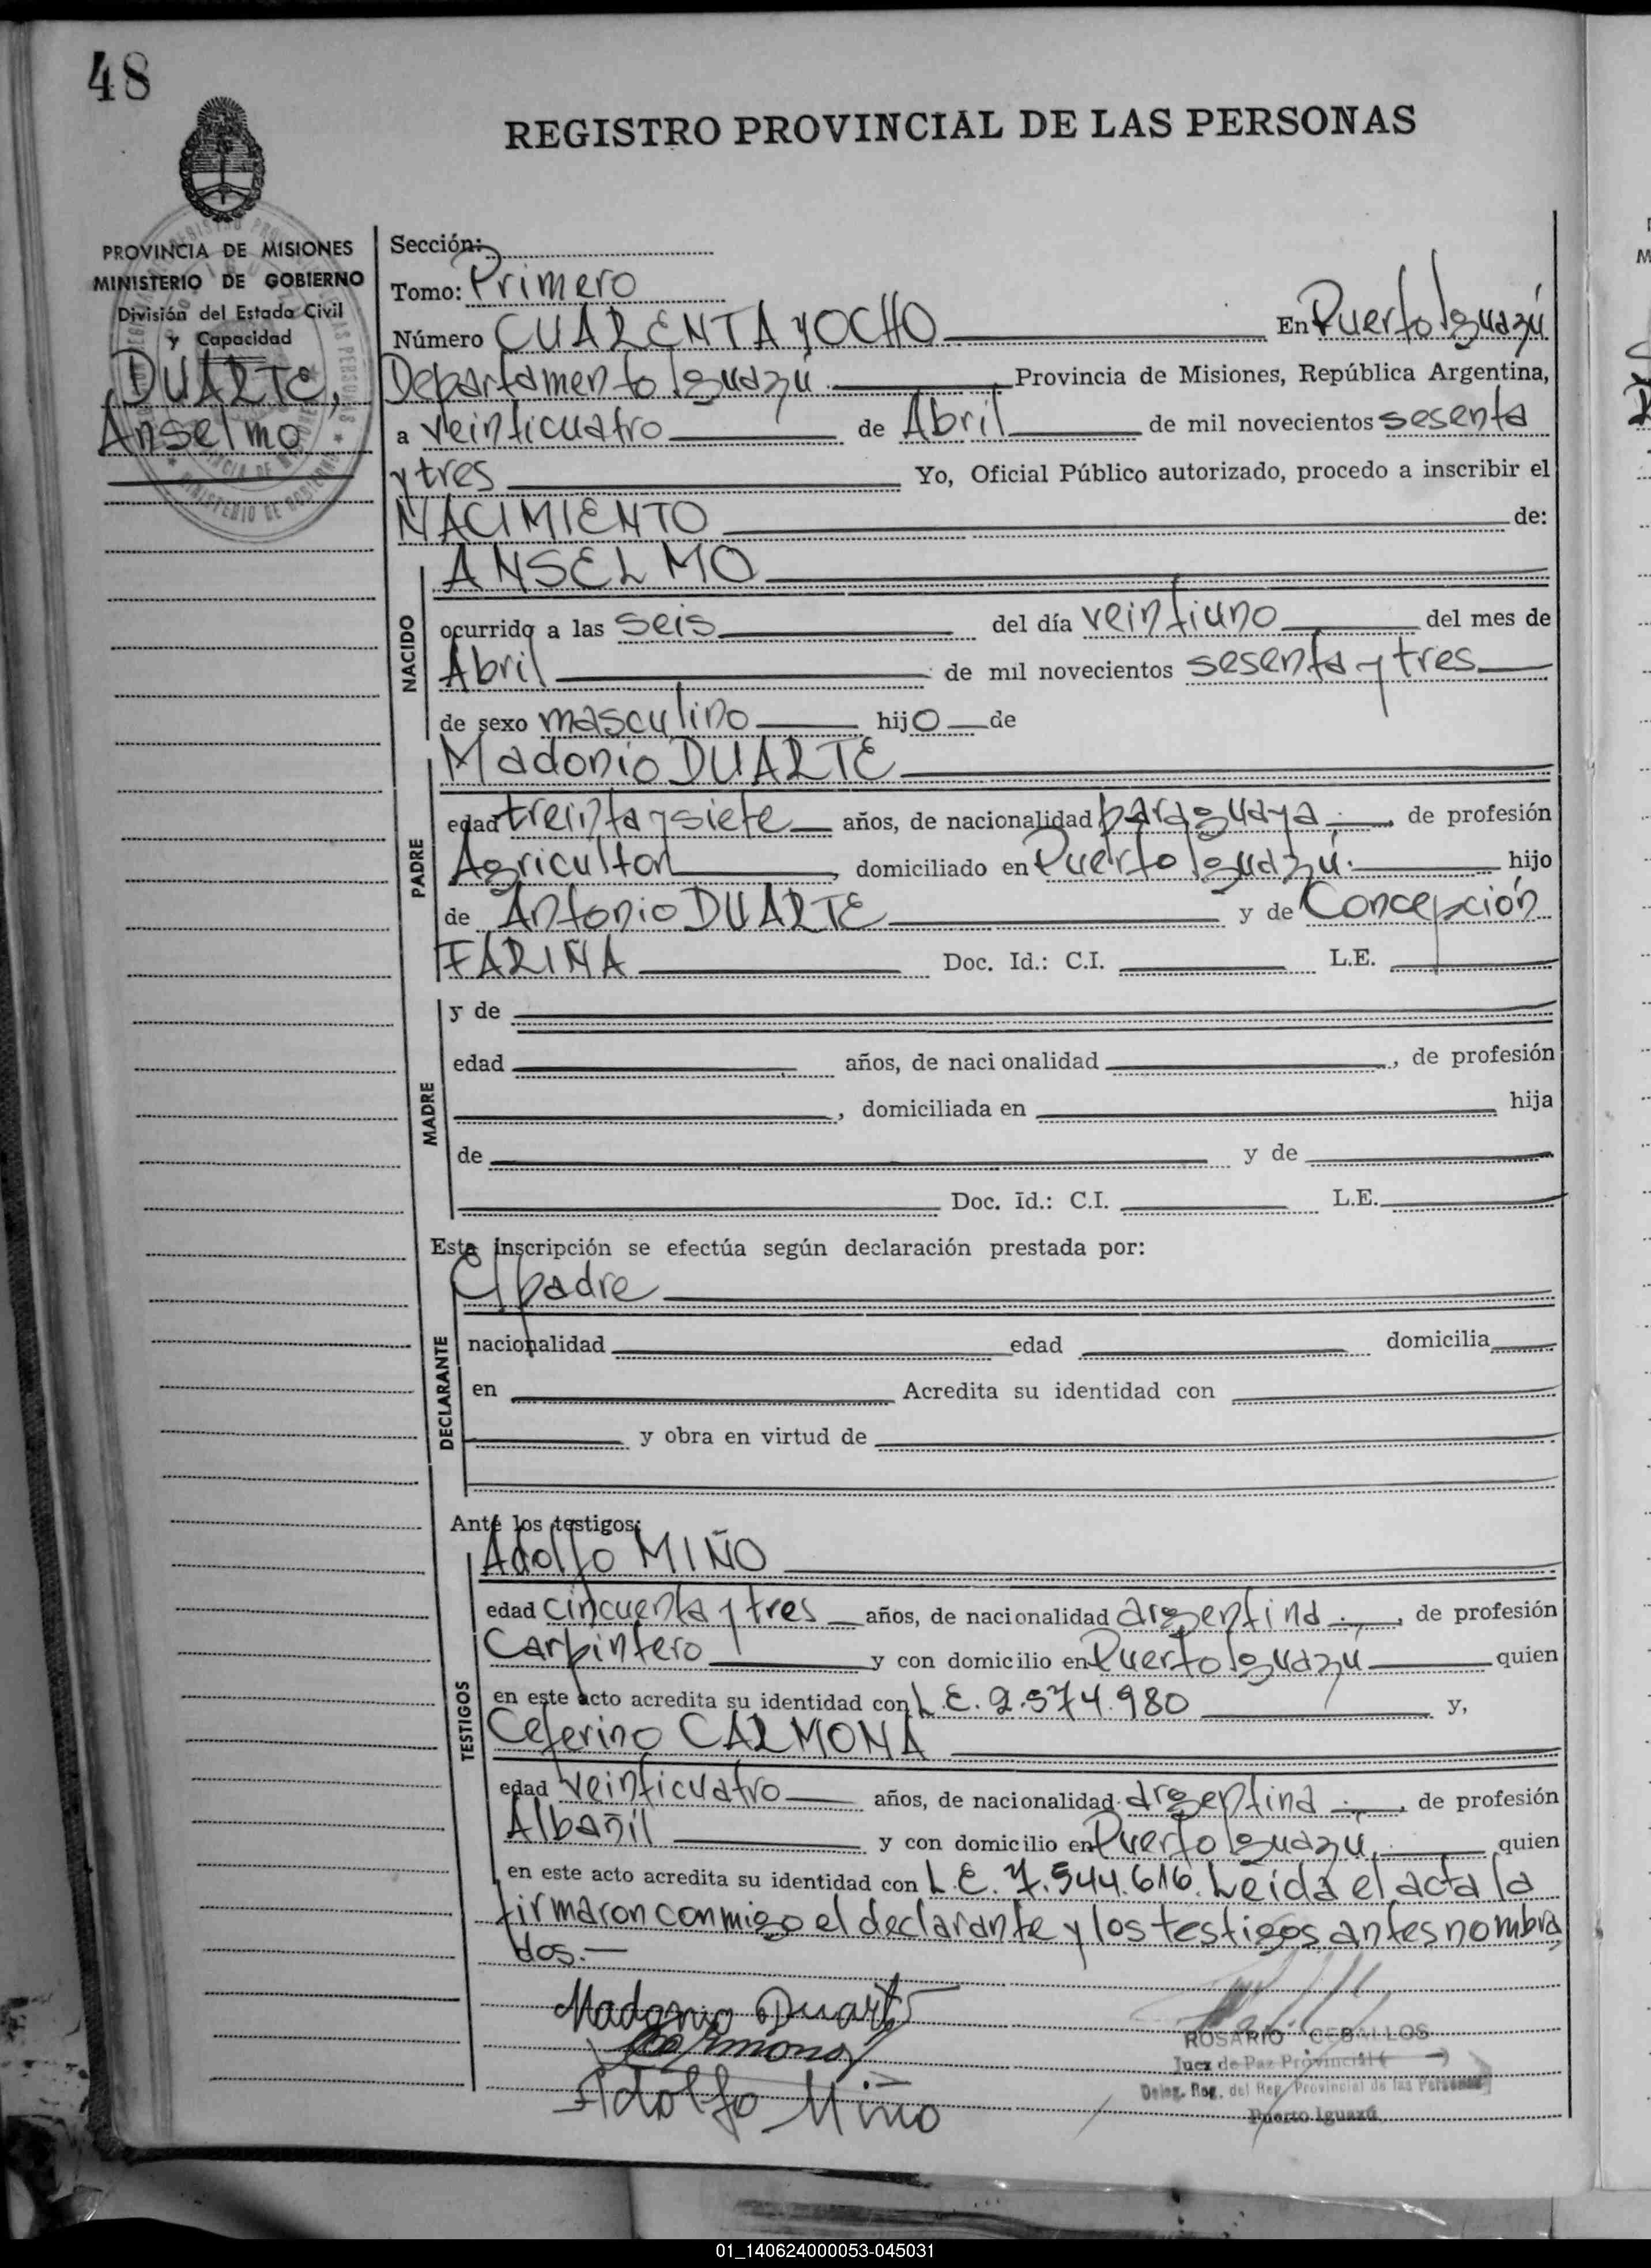 48
REGISTRO PROVINCIAL DE LAS PERSONAS
PROVINCIA DE MISIONES
MINISTERIO DE GOBIERNO
División del Estado Civil
y Capacidad
DUARTE,
Anselmo
Sección:
Tomo: Primero
Número CUARENTA y OCHO En Puerto Iguazú
Departamento Iguazú. Provincia de Misiones, República Argentina,
a veinticuatro de Abril de mil novecientos sesenta
y tres Yo, Oficial Público autorizado, procedo a inscribir el
NACIMIENTO de:
NACIDO
ANSELMO
ocurrido a las seis del día veintiuno del mes de
Abril de mil novecientos sesenta y tres
de sexo masculino hijo de
PADRE
Madonio DUARTE
edad treinta y siete años, de nacionalidad paraguaya, de profesión
Agricultor, domiciliado en Puerto Iguazú. hijo
de Antonio DUARTE y de Concepción
FARIÑA Doc. Id.: C.I. L.E.
MADRE
y de
edad años, de naci onalidad , de profesión
, domiciliada en hija
de y de
Doc. Id.: C.I. L.E.
Esta inscripción se efectúa según declaración prestada por:
El padre
DECLARANTE
nacionalidad edad domicilia
en Acredita su identidad con
y obra en virtud de
Ante los testigos:
TESTIGOS
Adolfo MIÑO
edad cincuenta y tres años, de nacionalidad argentina, de profesión
Carpintero y con domicilio en Puerto Iguazú quien
en este acto acredita su identidad con L.E. 2.574.980 y,
Ceferino CARMONA
edad veinticuatro años, de nacionalidad argentina, de profesión
Albañil y con domicilio en Puerto Iguazú, quien
en este acto acredita su identidad con L.E. 7.544.616. Leída el acta la
firmaron conmigo el declarante y los testigos antes nombra
dos.—
Madonio Duarte
Carmona
Adolfo Miño
ROSARIO CEBALLOS
Juez de Paz Provincial
Deleg. Reg. del Reg. Provincial de las Personas
Puerto Iguazú
01_140624000053-045031